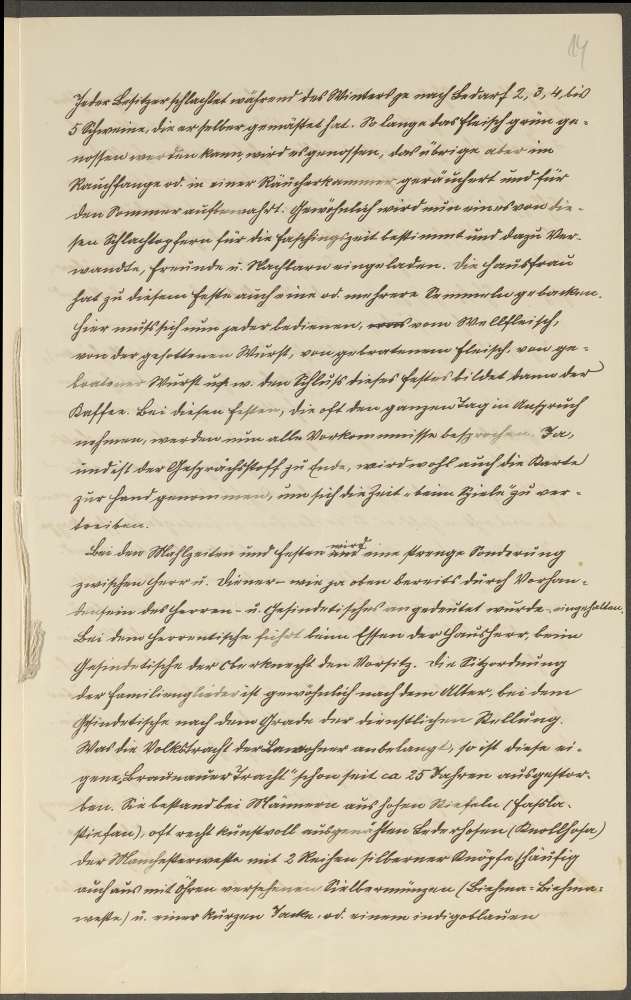 14
Jeder Besitzer schlachtet während des Winters je nach Bedarf 2, 3, 4, bis
5 Schweine, die er selber gemästet hat. So lange das Fleisch grün ge-
nossen werden kann, wird es genossen, das übrige aber im
Rauchfange od. in einer Räucherkammer geräuchert und für
den Sommer aufbewahrt. Gewöhnlich wird nun eines von die-
sen Schlachtopfern für die Faschingszeit bestimmt und dazu Ver-
wandte, Freunde u. Nachbarn eingeladen. Die Hausfrau
hat zu diesem Feste auch eine od. mehrere Semmeln gebacken.
Hier muß sich nun jeder bedienen, vom Wellfleisch,
von der gesottenen Wurst, von gebratenem Fleisch, von ge-
bratener Wurst usf. w. Den Schluß dieses Festes bildet dann der
Kaffee. Bei diesen Festen, die oft den ganzen Tag in Anspruch
nehmen, werden nun alle Vorkommnisse besprochen. Ja,
und ist der Gesprächsstoff zu Ende, wird wohl auch die Karte
zur Hand genommen, um sich die Zeit "beim Spiele" zu ver-
treiben.
Bei den Mahlzeiten und Festen wird eine strenge Sonderung
zwischen Herr u. Diener - wie ja oben bereits durch Vorhan-
densein des Herren- u. Gesindetisches angedeutet wurde - eingehalten.
Bei dem Herrentische führt beim Essen der Hausherr, beim
Gesindetische der Oberknecht den Vorsitz. Die Sitzordnung
der Familienglieder ist gewöhnlich nach dem Alter, bei dem
Gesindetische nach dem Grade der dienstlichen Stellung.
Was die Volkstracht der Bewohner anbelangt, so ist diese ei-
gene "Braunauer Tracht" schon seit ca 25 Jahren ausgestor-
ben. Sie bestand bei Männern aus hohen Stiefeln (Fassla-
stiefan), oft recht kunstvoll ausgenähten Lederhosen (Knollhosa)
der Manchesterweste mit 2 Reihen silberner Knöpfe (häufig
auch aus mit Öhren versehenen Silbermünzen (Biehma-Biehma-
weste) u. einer kurzen Jacke, od. einem indigoblauen